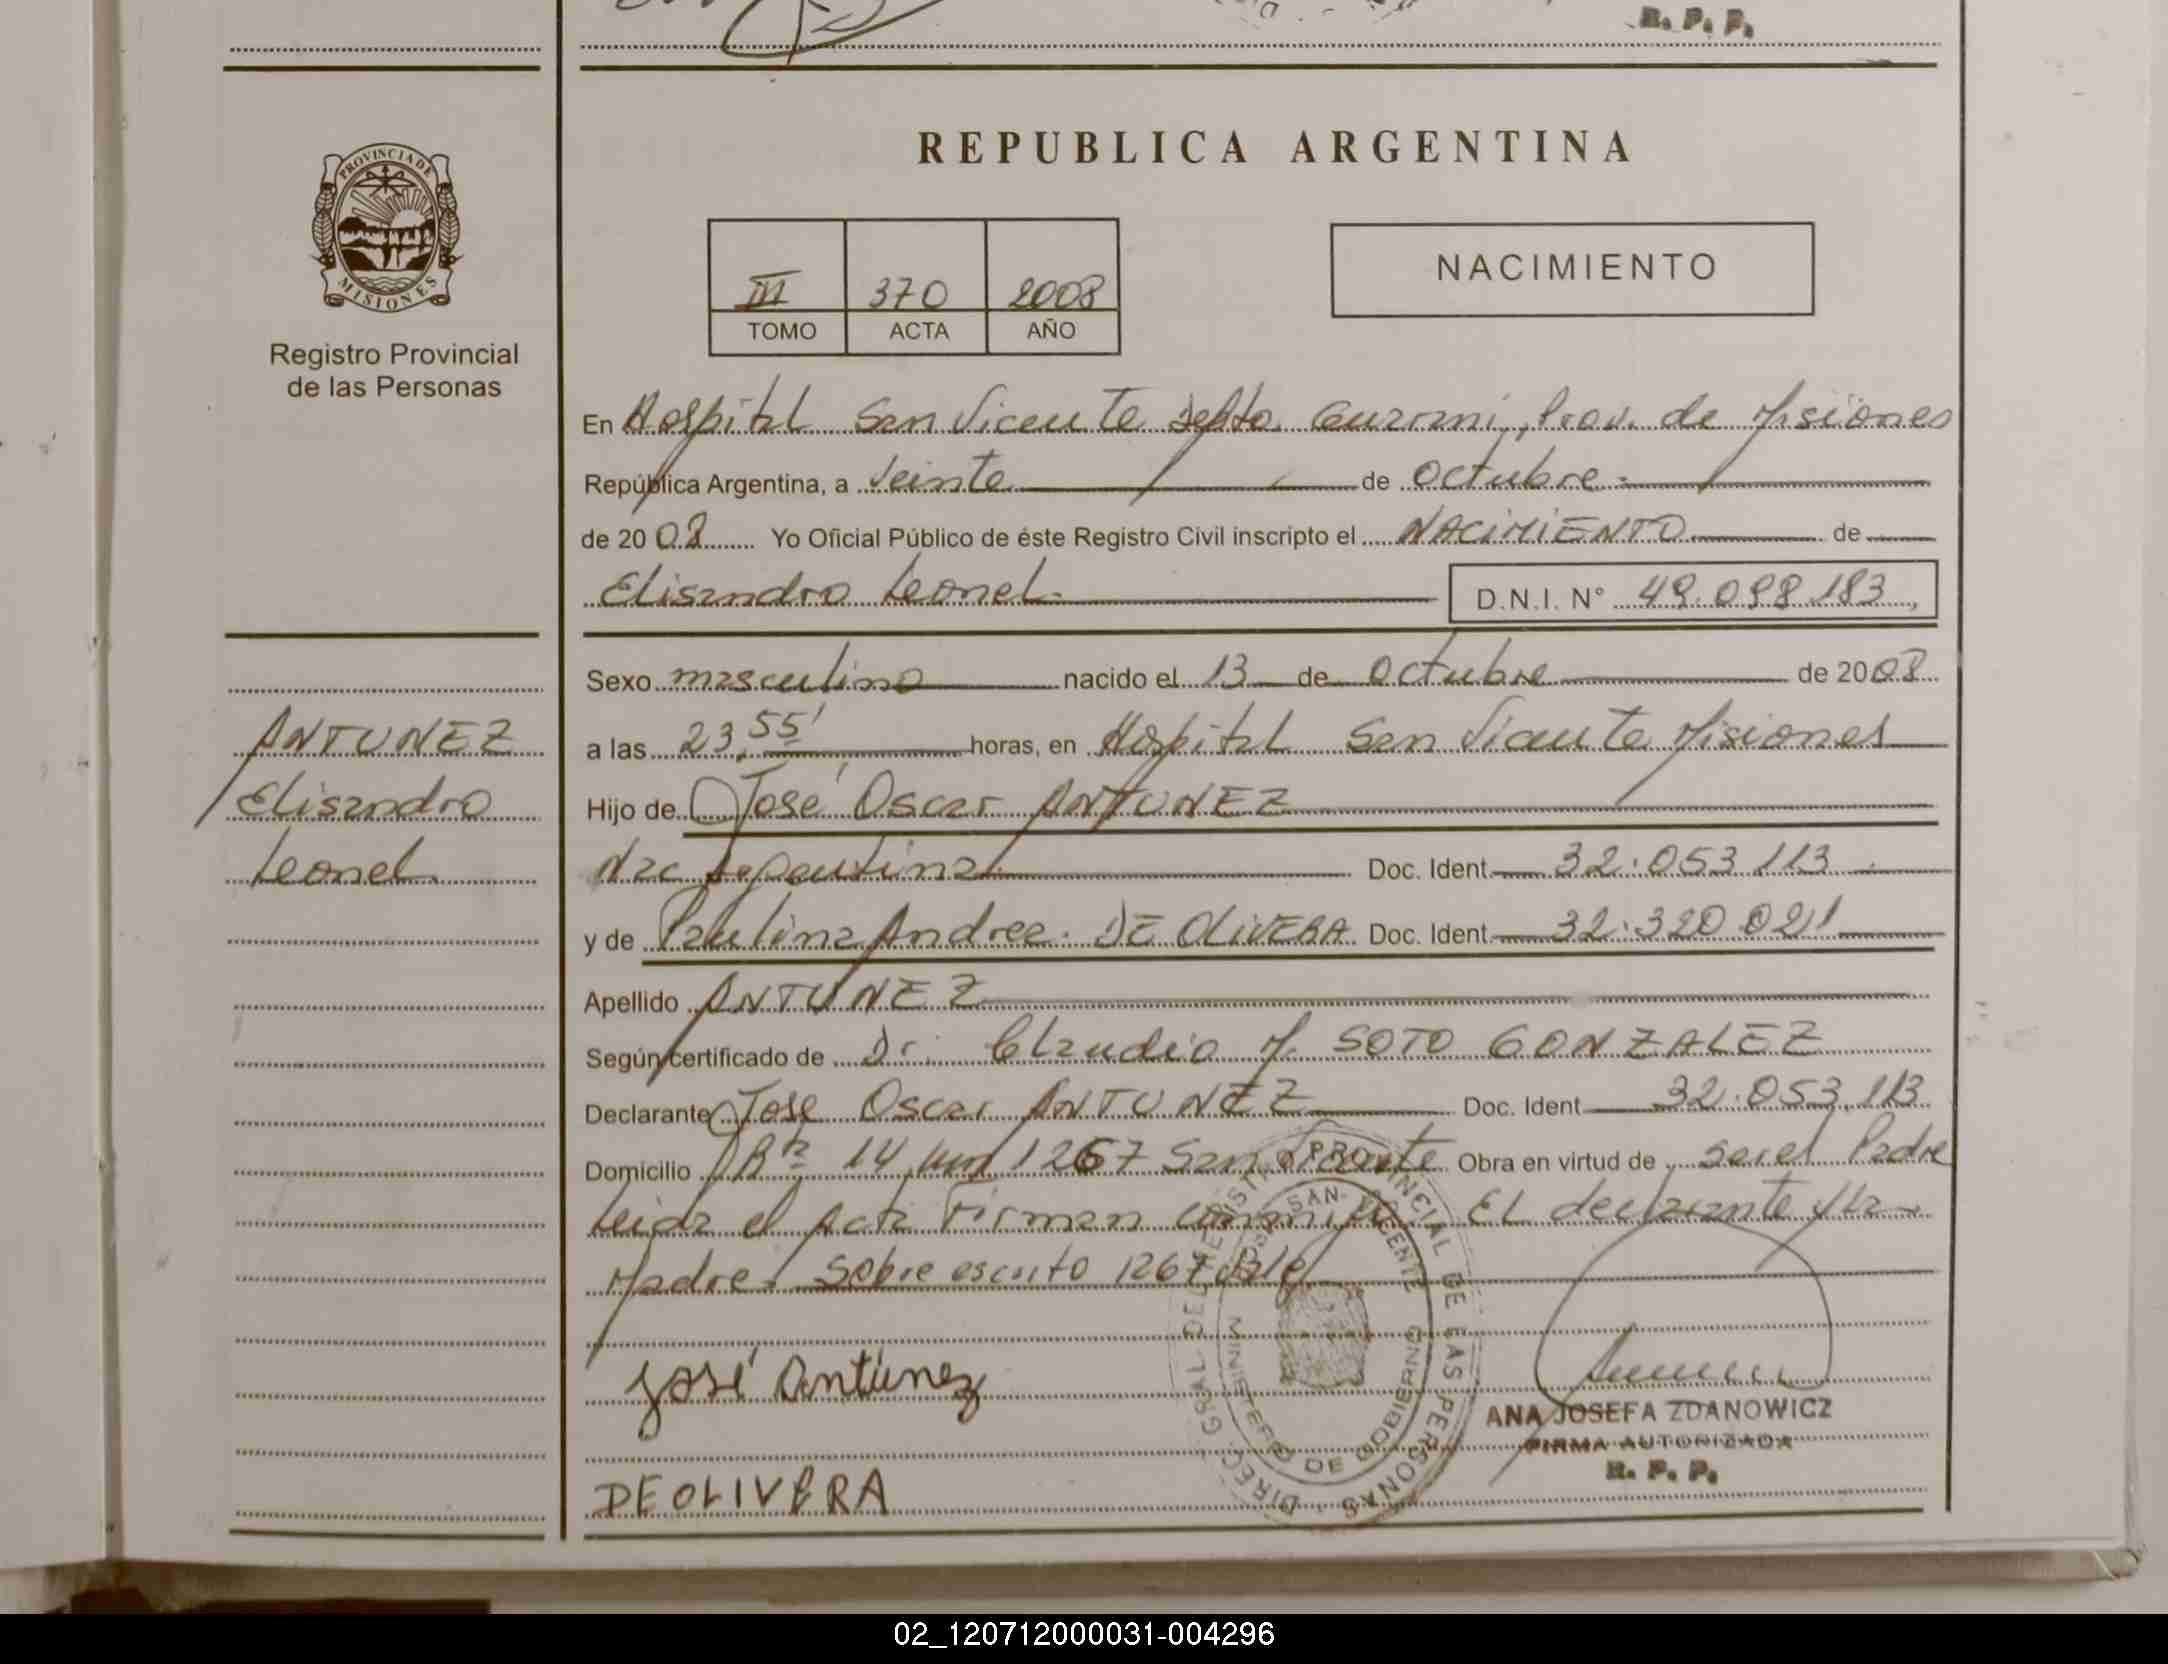 R. P. P.
PROVINCIA DE
MISIONES
Registro Provincial
de las Personas
ANTUNEZ
Elisandro
Leonel
REPUBLICA ARGENTINA
III 370 2008
TOMO ACTA AÑO
NACIMIENTO
En Hospital San Vicente Depto. Guarani, Prov. de Misiones
República Argentina, a veinte de octubre
de 2008 Yo Oficial Público de éste Registro Civil inscripto el NACIMIENTO de
Elisandro Leonel. D.N.I. N° 49.098.183
Sexo masculino nacido el 13 de octubre de 2008
a las 23,55' horas, en Hospital San Vicente Misiones
Hijo de José Oscar ANTUNEZ
Nac Argentina. Doc. Ident 32.053.113
y de Paulina Andrea. DE OLIVERA Doc. Ident 32.320.021
Apellido ANTUNEZ
Según certificado de Dr. Claudio M. SOTO GONZALEZ
Declarante José Oscar ANTUNEZ Doc. Ident 32.053.113
Domicilio Rta 14 km 1267 San Vicente Obra en virtud de ser el Padre
Leida el Acta Firman conmigo El declarante y la
Madre. Sobre escrito 1267 Vale
José Antúnez
DE OLIVERA
DIREC. GRAL. DEL REGISTRO PROVINCIAL DE LAS PERSONAS
SAN VICENTE
MINISTERIO DE GOBIERNO
ANA JOSEFA ZDANOWICZ
FIRMA AUTORIZADA
R. P. P.
02_120712000031-004296